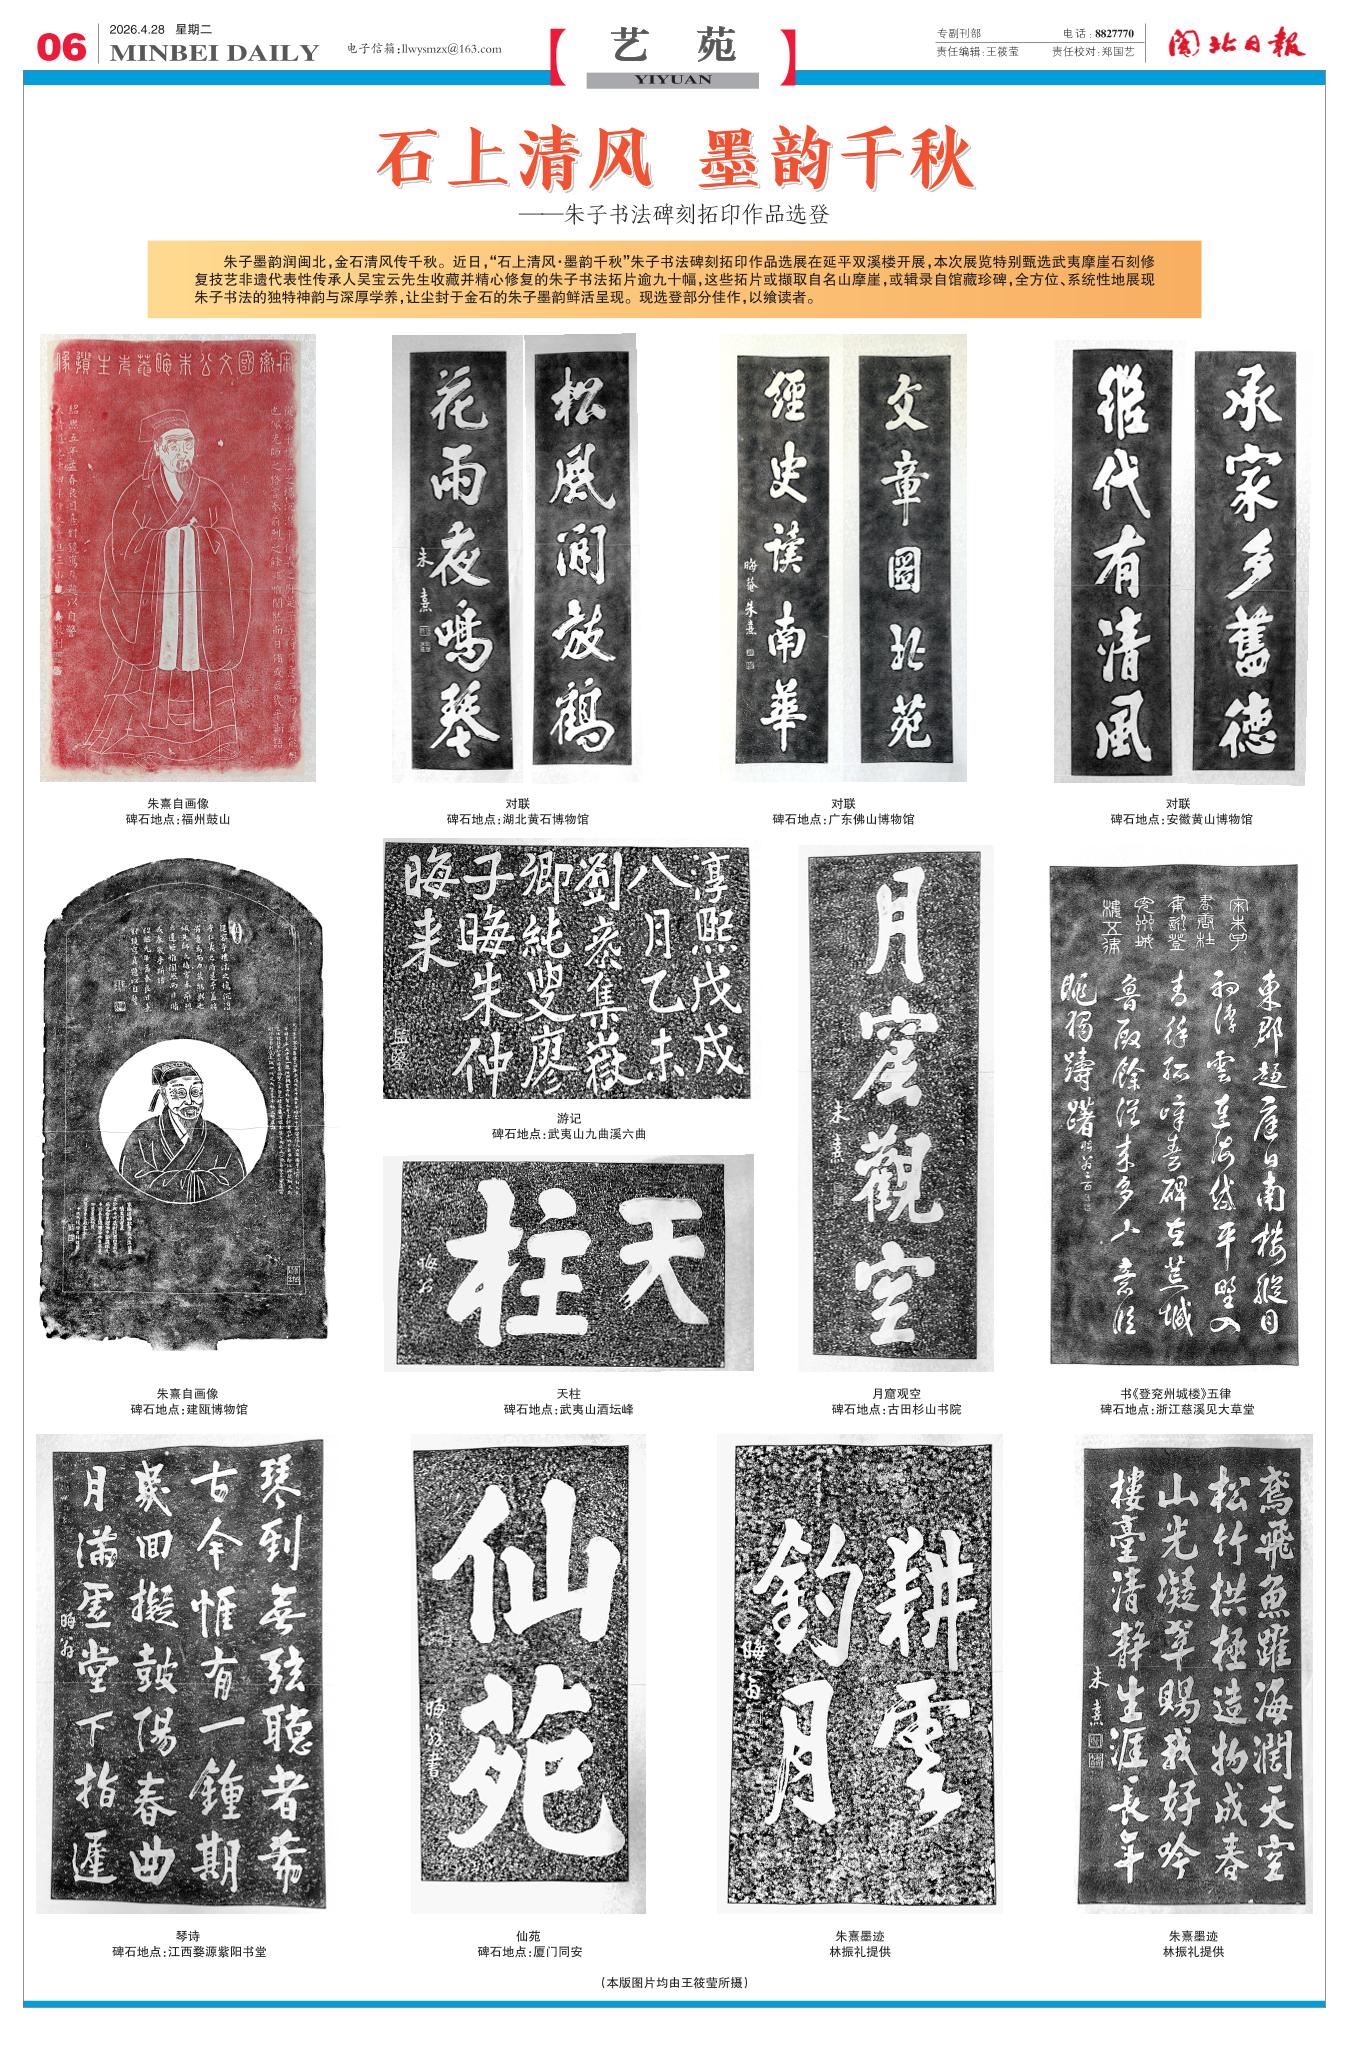 06
2026.4.28 星期二
MINBEI DAILY
电子信箱:llwysmzx@163.com
艺 苑
YIYUAN
专副刊部 电话:8827770
责任编辑:王筱莹 责任校对:郑国艺
闽北日报
石上清风 墨韵千秋
——朱子书法碑刻拓印作品选登
朱子墨韵润闽北,金石清风传千秋。近日,“石上清风·墨韵千秋”朱子书法碑刻拓印作品选展在延平双溪楼开展,本次展览特别甄选武夷摩崖石刻修
复技艺非遗代表性传承人吴宝云先生收藏并精心修复的朱子书法拓片逾九十幅,这些拓片或撷取自名山摩崖,或辑录自馆藏珍碑,全方位、系统性地展现
朱子书法的独特神韵与深厚学养,让尘封于金石的朱子墨韵鲜活呈现。现选登部分佳作,以飨读者。
朱熹自画像
碑石地点:福州鼓山
松風閒放鶴
花雨夜鳴琴
朱熹
对联
碑石地点:湖北黄石博物馆
文章圖北苑
經史讀南華
晦菴朱熹
对联
碑石地点:广东佛山博物馆
承家多舊德
繼代有清風
对联
碑石地点:安徽黄山博物馆
朱熹自画像
碑石地点:建瓯博物馆
淳熙戊戌
八月乙未
劉彥集嶽
卿純叟廖
子晦朱仲
晦来
游记
碑石地点:武夷山九曲溪六曲
天柱
晦翁
天柱
碑石地点:武夷山酒坛峰
月窟觀空
朱熹
月窟观空
碑石地点:古田杉山书院
東郡趨庭日南樓縱目
初浮雲連海岱平野入
青徐孤嶂秦碑在荒城
魯殿餘從来多古意臨
眺獨躊躇
书《登兖州城楼》五律
碑石地点:浙江慈溪见大草堂
琴到無弦聽者希
古今惟有一鍾期
幾回擬鼓陽春曲
月滿虛堂下指遲
晦翁
琴诗
碑石地点:江西婺源紫阳书堂
仙苑
晦翁書
仙苑
碑石地点:厦门同安
耕雲
釣月
晦翁
朱熹墨迹
林振礼提供
鳶飛魚躍海濶天空
松竹拱極造物成春
山光凝翠賜我好吟
樓臺清靜生涯長年
朱熹
朱熹墨迹
林振礼提供
(本版图片均由王筱莹所摄)